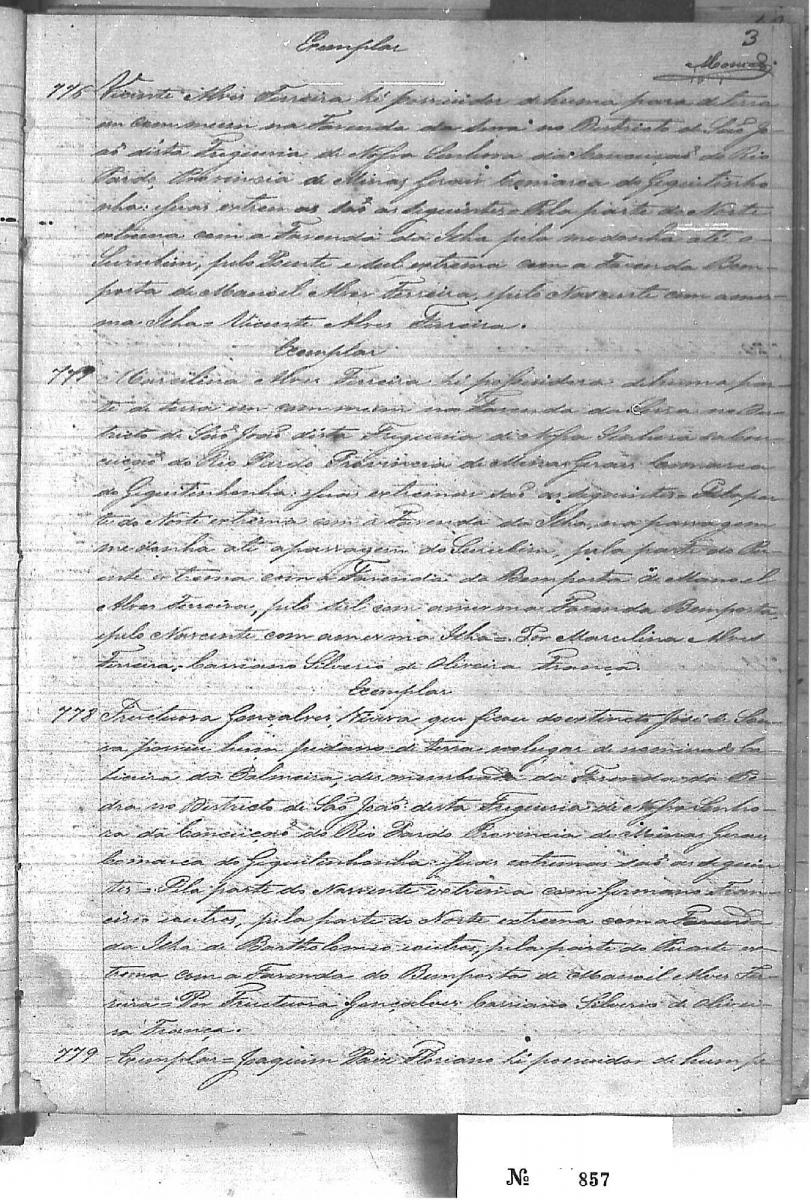 3
Exemplar
776 Vicente Alves Ferreira hé possuidor de huma parte de terra
em commum na Fazenda da Serra no Districto de São Jo-
aõ désta Freguesia de Nossa Senhora da Conceiçaõ do Rio
Pardo, Provincia de Minas Geraes Comarca do Gequitinho
nha: suas extremas saõ as seguintes = Pela parte do Norte
extrema com a Fazenda da Ilha pela medonha até o
Surubim, pelo Poente e Sul extrema com a Fazenda Bom-
posta de Manoel Alves Ferreira, e pelo Nascente com a mes-
ma Ilha = Vicente Alves Ferreira.
Exemplar
777 Marcelina Alves Ferreira hé possuidora de huma par-
te de terra em commum na Fazenda da Serra no Dis-
tricto de Saõ Joaõ désta Freguesia de Nossa Senhora da Con
ceiçaõ do Rio Pardo Provincia de Minas Geraes Comarca
do Gequitinhonha: suas extremas saõ as seguintes = Pela par
te do Norte extrema com a Fazenda da Ilha, na passagem
medonha até a passagem do Surubim, pela parte do Po-
ente extrema com a Fazenda da Bomposta de Manoel
Alves Ferreira, pelo Sul com a mesma Fazenda Bomposta,
e pelo Nascente com a mesma Ilha = Por Marcelina Alves
Ferreira, Cassiano Silverio de Oliveira França.
Exemplar
778 Fructuosa Gonçalves, Viuva que ficou do extincto José de Sou
za possue hum pedaço de terra no lugar denominado Ca-
beceira da Palmeira, desmembrada da Fazenda da Pe-
dra no Districto de Saõ Joaõ desta Freguesia de Nossa Senho-
ra da Conceiçaõ do Rio Pardo Provincia de Minas Geraes
Comarca do Gequitinhonha: suas extremas saõ as seguin
tes = Pela parte do Nascente extrema com Germano Fran-
cisco e outros, pela parte do Norte extrema com a Fazenda
da Ilha de Bartholomeo e outros, pela parte do Poente ex-
trema com a Fazenda do Bomposta de Manoel Alves Fer-
reira = Por Fructuosa Gonçalves Cassiano Silverio de Olivei-
ra França.
779 Exemplar = Joaquim Floriano hé possuidor de hum pe
Nº 857